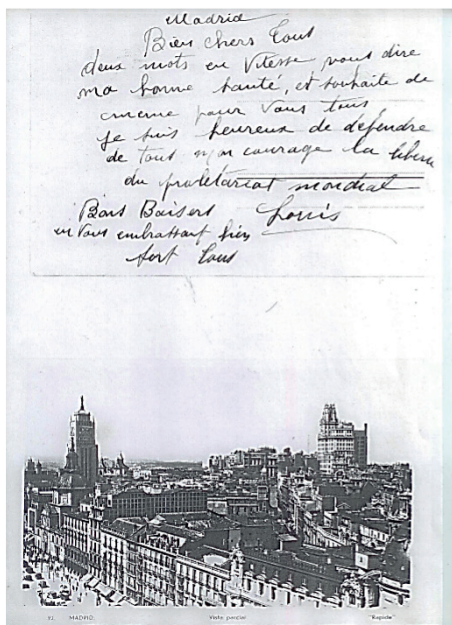 Madrid
Bien chers tous
deux mots en vitesse vous dire
ma bonne santé, et souhaite de
même pour vous tous,
je suis heureux de défendre
de tout mon courage la liberté
du prolétariat mondial
Bons Baisers Louis
en vous embrassant bien
fort tous
MADRID. Vista parcial "Rapide"